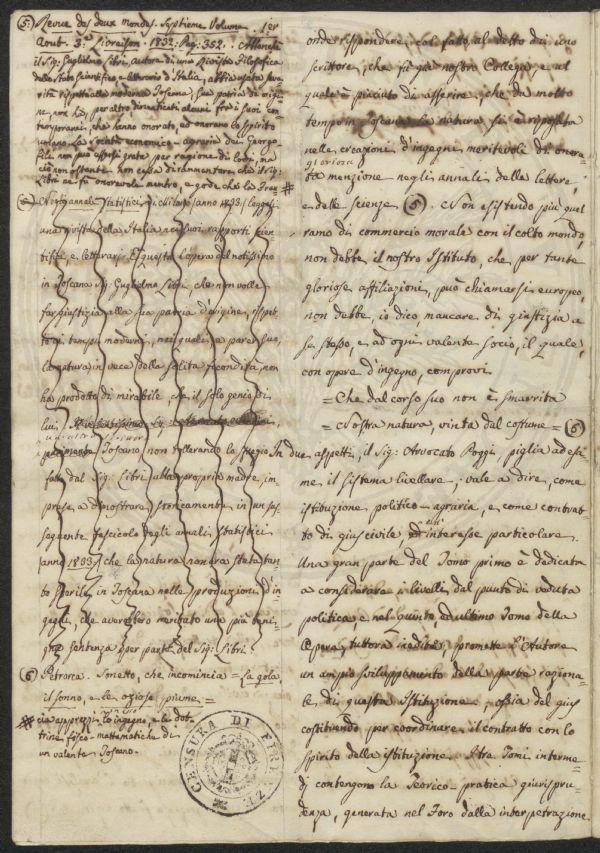 (5.) Revue des deux mondes. Septieme Volume. 1er
Aout. 3.e Livraison. 1832. Pag: 352. . Attenesi
il Sig: Guglielmo Libri, autore di una rivista Filosofica
dello stato scientifico e letterario d'Italia, abbia usata seve-
rità rispetto alla moderna Toscana, sua patria di origi-
ne, ed ha, per altro dimenticati alcuni fra i suoi con-
temporanei, che hanno onorato, ed onorano lo Spirito
umano. La società economico-agraria dei Georgo-
fili non può esserli grata per ragione di lode, ma
ciò non ostante non cessa di rammentare che il Sig:
Libri ne fù onorevole membro, e gode che la Fran- #
Negli annali Statistici di Milano (anno 1833) leggesi
una rivista della Italia nei suoi rapporti scien-
tifici, e letterarj. È questa l'opera del notissimo
in Toscana Sig: Guglielmo Libri, che non volle
far giustizia alla sua patria d'origine, rispet-
to ai tempi moderni, nei quali, a parer suo,
la natura in vece della solita fecondità, non
ha prodotto di mirabile, che il solo genio di
lui.
Toscano, non tollerando lo sfregio
fatto dal Sig: Libri alla propria madre, im-
prese a dimostrare storicamente in un sus-
seguente fascicolo degli annali Statistici
(anno 1833) che la natura non era stata tan-
to sterile in Toscana nelle produzioni d'in-
gegni, che avrebbero meritato una più beni-
gna sentenza per parte del Sig: Libri.
(6) Petrarca. Sonetto, che incomincia = La gola,
il sonno, e le oziose piume =
# cia apprezzi lo ingegno, e le dot-
trine fisico-mattematiche di
un valente Toscano.
CENSURA DI FIRENZE
onde rispondere, col fatto, al detto di uno
scrittore, che fù già nostro Collega, e al
quale è piaciuto di asserire, che da molto
tempo in Toscana la natura si è riposata
nelle creazioni d'ingegni meritevoli di onora-
gloriosa
ta menzione negli annali della lettere,
e delle scienze (5). Non esistendo più quel
ramo di commercio morale con il colto mondo,
non debbe il nostro Istituto, che per tante
gloriose affiliazioni, può chiamarsi europeo,
non debbe, io dico mancare di giustizia a
se stesso, e ad ogni valente socio, il quale,
con opere d'ingegno, comprovi
= Che dal corso suo non è smarrita
= Nostra natura, vinta dal costume = (6)
In due aspetti, il Sig: Avvocato Poggi, piglia ad esa-
me il sistema livellare; vale a dire, come
istituzione politico-agraria, e come contrat-
to di gius civile interesse particolare.
Una gran parte del Tomo primo è dedicata
a considerare i livelli dal punto di veduta
politica e nel quinto ed ultimo Tomo della
Opera, tuttora inedito, promette l'Autore
un ampio sviluppamento della parte raziona-
le di questa Istituzione, ossia del gius
costituendo, per coordinare il contratto con lo
spirito della istituzione. I tre Tomi interme-
dj contengono la Teorico-pratica giurispru-
denza, generata nel Foro dalla interpretrazione